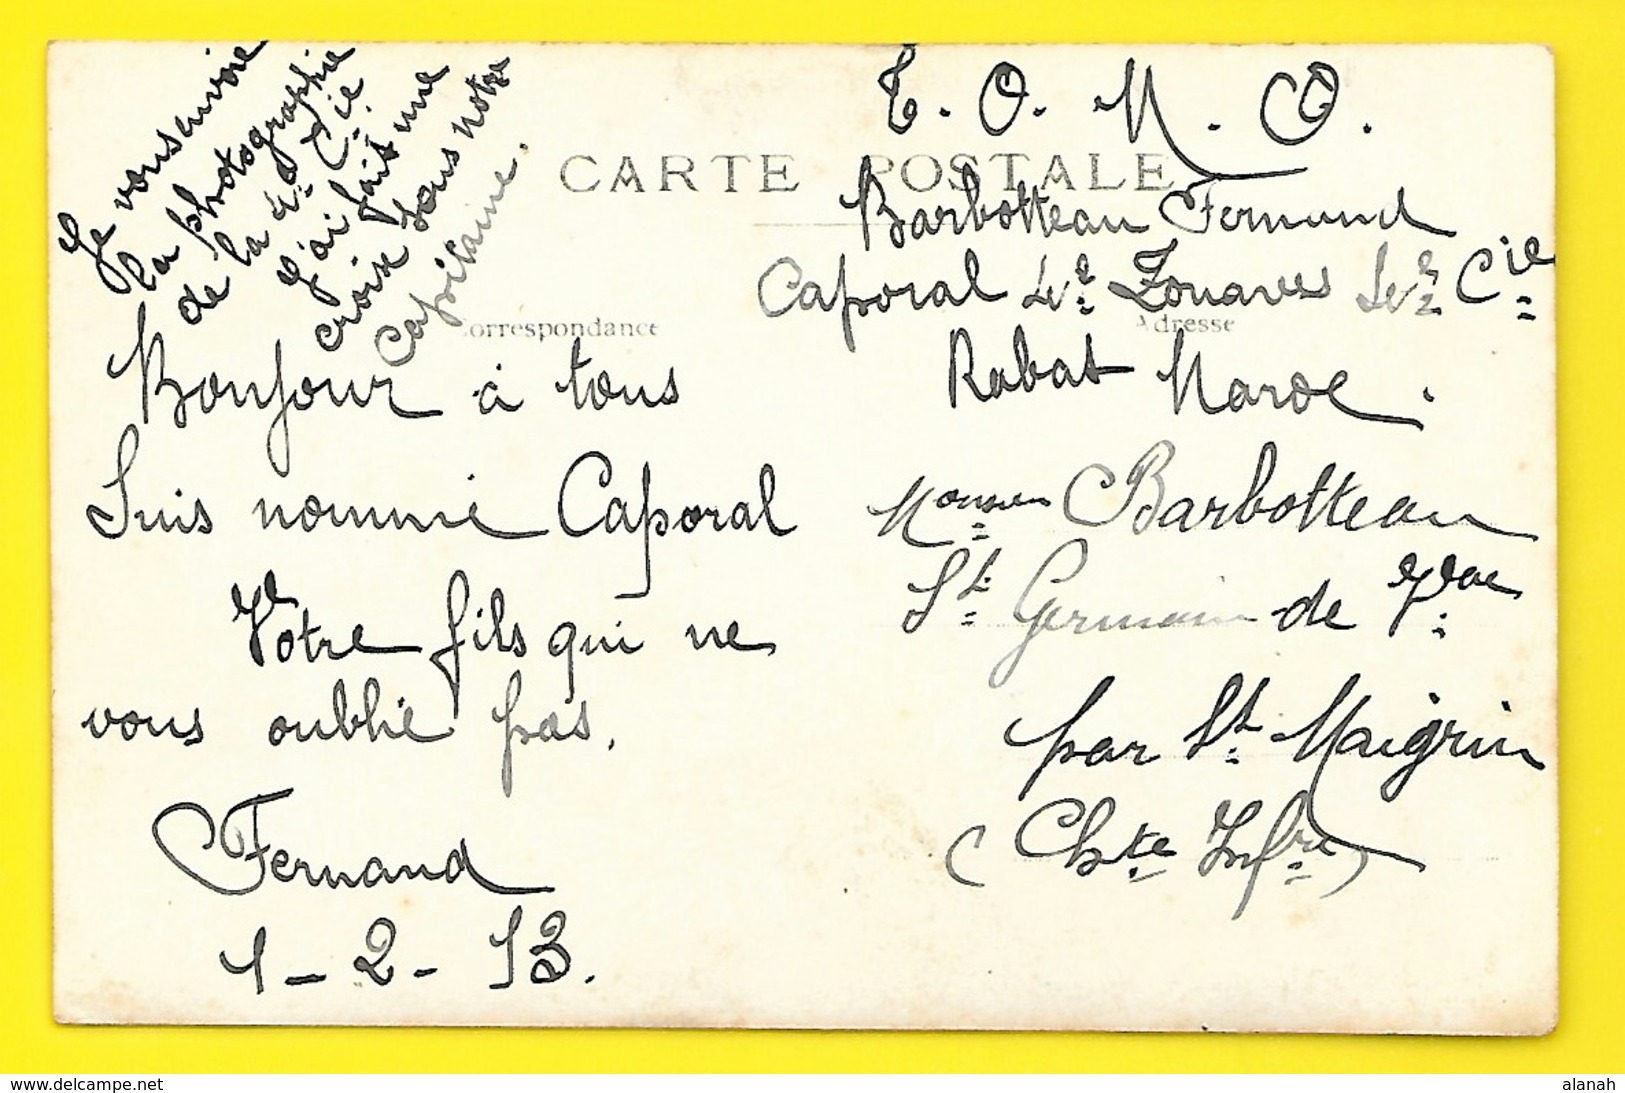 Je vous envoie
la photographie
de la 2e Cie
J'ai fait une
croix sous notre
capitaine.
CARTE POSTALE
Correspondance
Bonjour à tous
Suis nommé Caporal
Votre fils qui ne
vous oublie pas.
Fernand
1-2-13.
T. O. M. O.
Barbotteau Fernand
Caporal 4e Zouaves Cie
Adresse
Rabat Maroc.
Monsieur Barbotteau
St Germain de
par St Maigrin
(Chte Infre)
delcampe.net
alanah